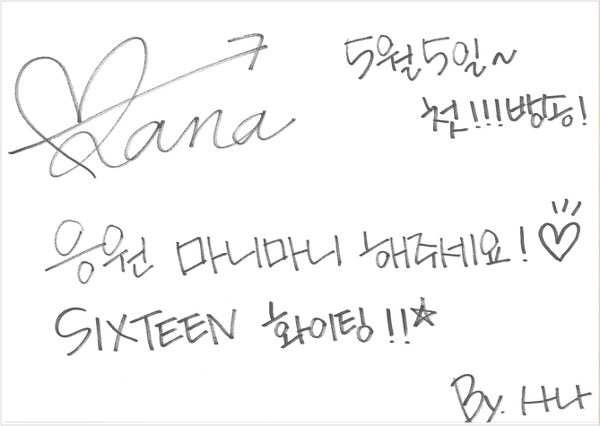 Sana
5월5일~
첫!!!방송!
응원 마니마니 해주세요!♡
SIXTEEN 화이팅!!☆
By. 사나